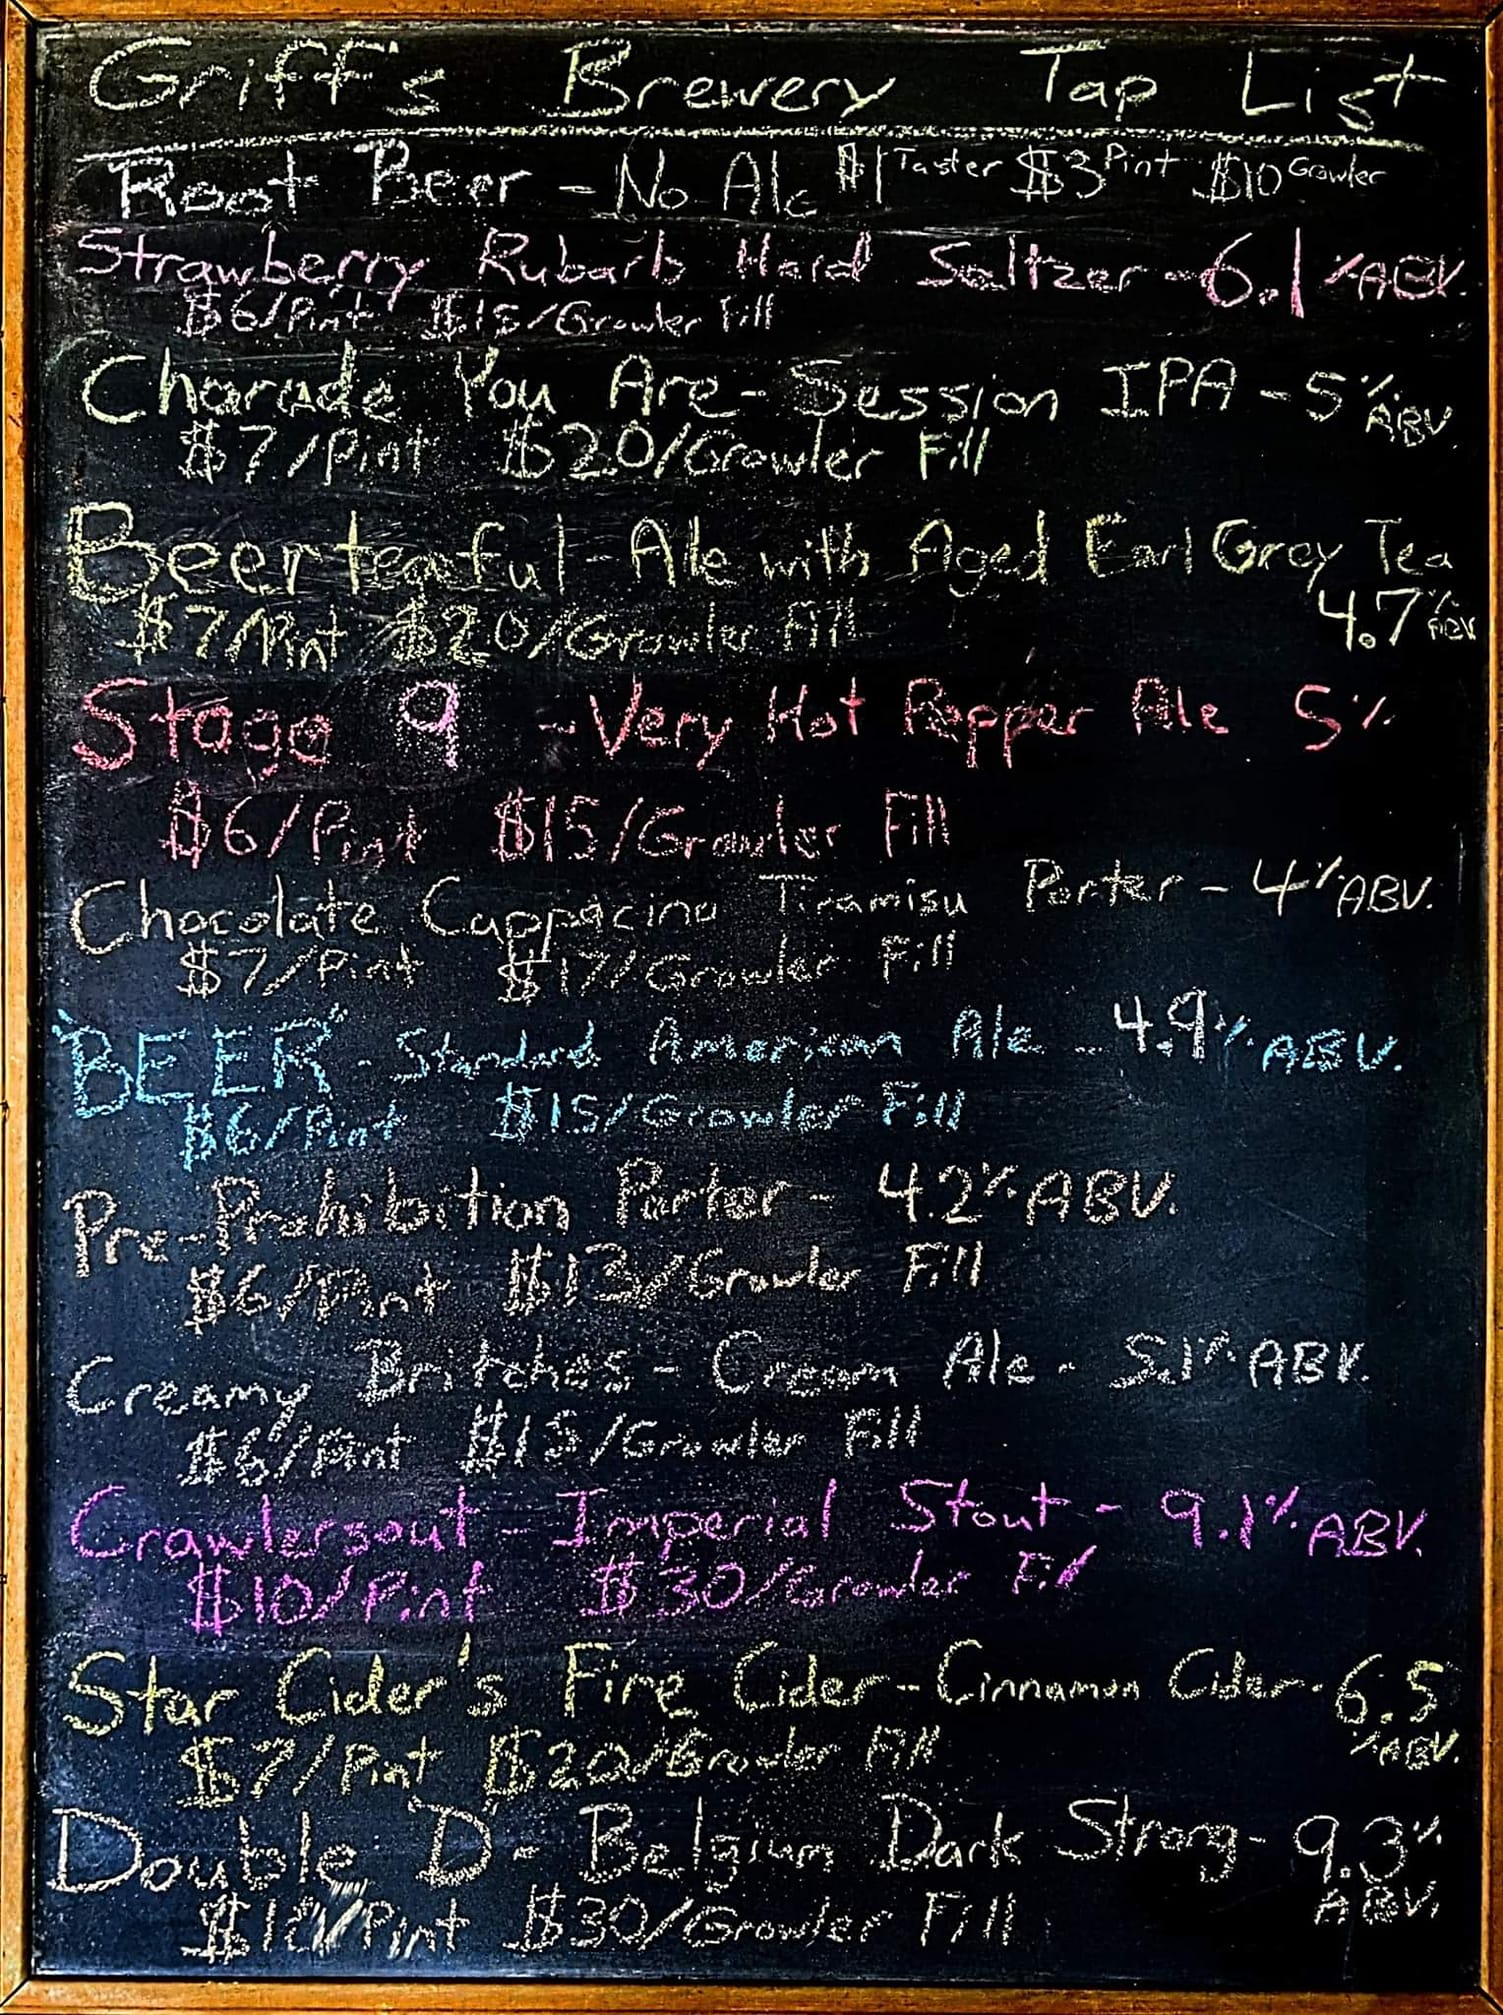 Griff's Brewery Tap List
Root Beer - No Alc $1 Taster $3 Pint $10 Growler
Strawberry Rubarb Hard Seltzer - 6.1% ABV.
$6/Pint $15/Growler Fill
Charade You Are - Session IPA - 5% ABV.
$7/Pint $20/Growler Fill
Beerteaful - Ale with Aged Earl Grey Tea
$7/Pint $20/Growler Fill 4.7% ABV
Stage 9 - Very Hot Pepper Ale 5%
$6/Pint $15/Growler Fill
Chocolate Cappacino Tiramisu Porter - 4% ABV.
$7/Pint $17/Growler Fill
"BEER" - Standard American Ale - 4.9% ABV.
$6/Pint $15/Growler Fill
Pre-Prohibition Porter - 4.2% ABV.
$6/Pint $13/Growler Fill
Creamy Britches - Cream Ale - 5.1% ABV.
$6/Pint $15/Growler Fill
Crawlersout - Imperial Stout - 9.1% ABV.
$10/Pint $30/Growler Fill
Star Cider's Fire Cider - Cinnamon Cider - 6.5
$7/Pint $20/Growler Fill % ABV.
Double D - Belgium Dark Strong - 9.3%
$10/Pint $30/Growler Fill ABV.